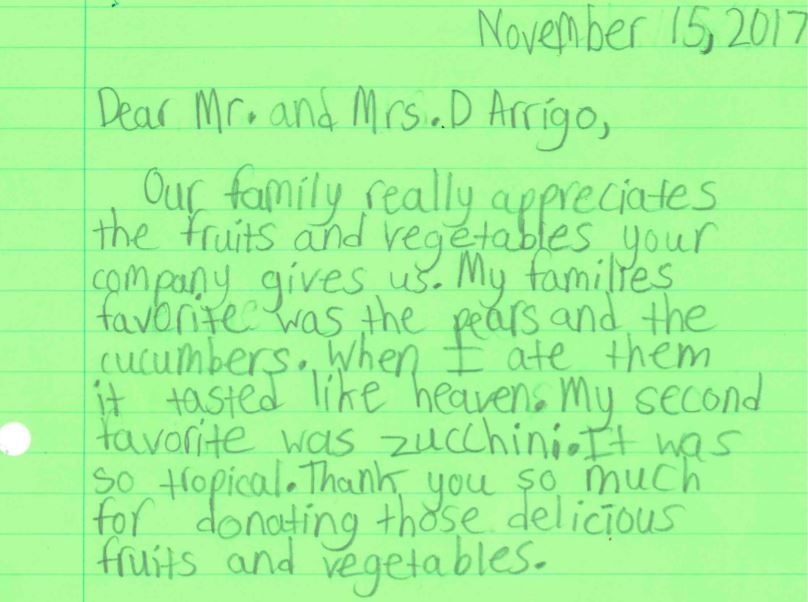 November 15, 2017
Dear Mr. and Mrs. D Arrigo,
Our family really appreciates
the fruits and vegetables your
company gives us. My families
favorite was the pears and the
cucumbers. When I ate them
it tasted like heaven. My second
favorite was zucchini. It was
so tropical. Thank you so much
for donating those delicious
fruits and vegetables.